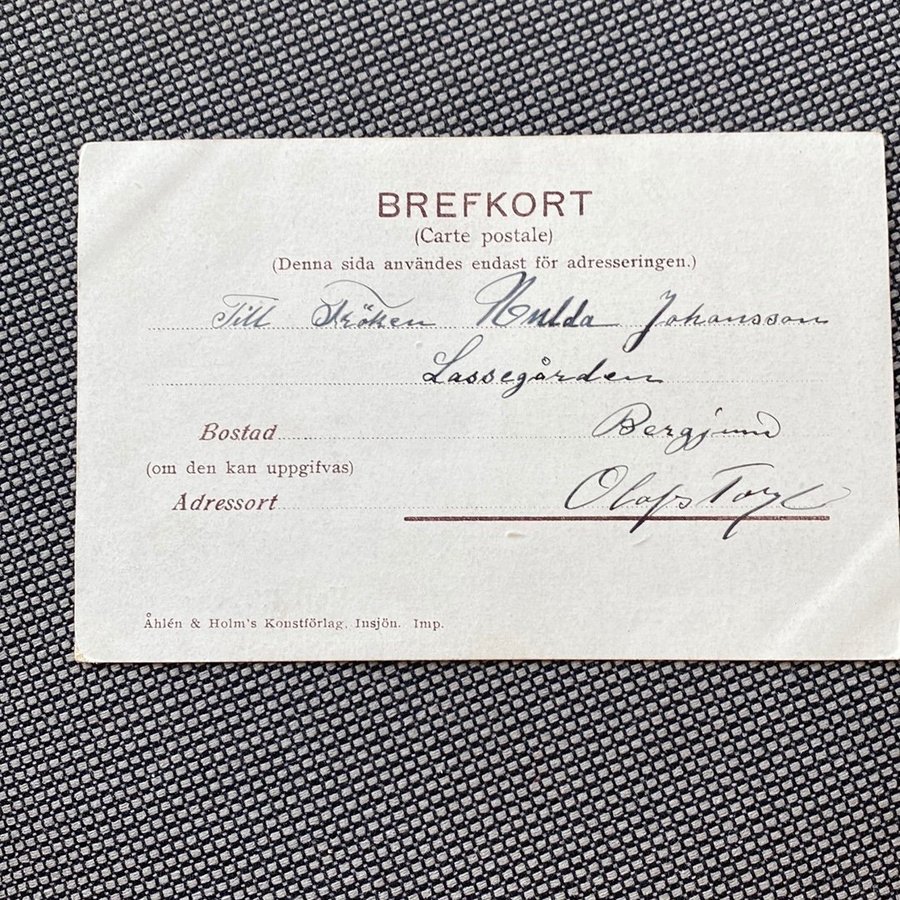 BREFKORT
(Carte postale)
(Denna sida användes endast för adresseringen.)
Till Fröken Hulda Johansson
Lassegården
Bostad Bergjum
(om den kan uppgifvas)
Adressort Olofs Torp
Åhlén & Holm's Konstförlag, Insjön. Imp.